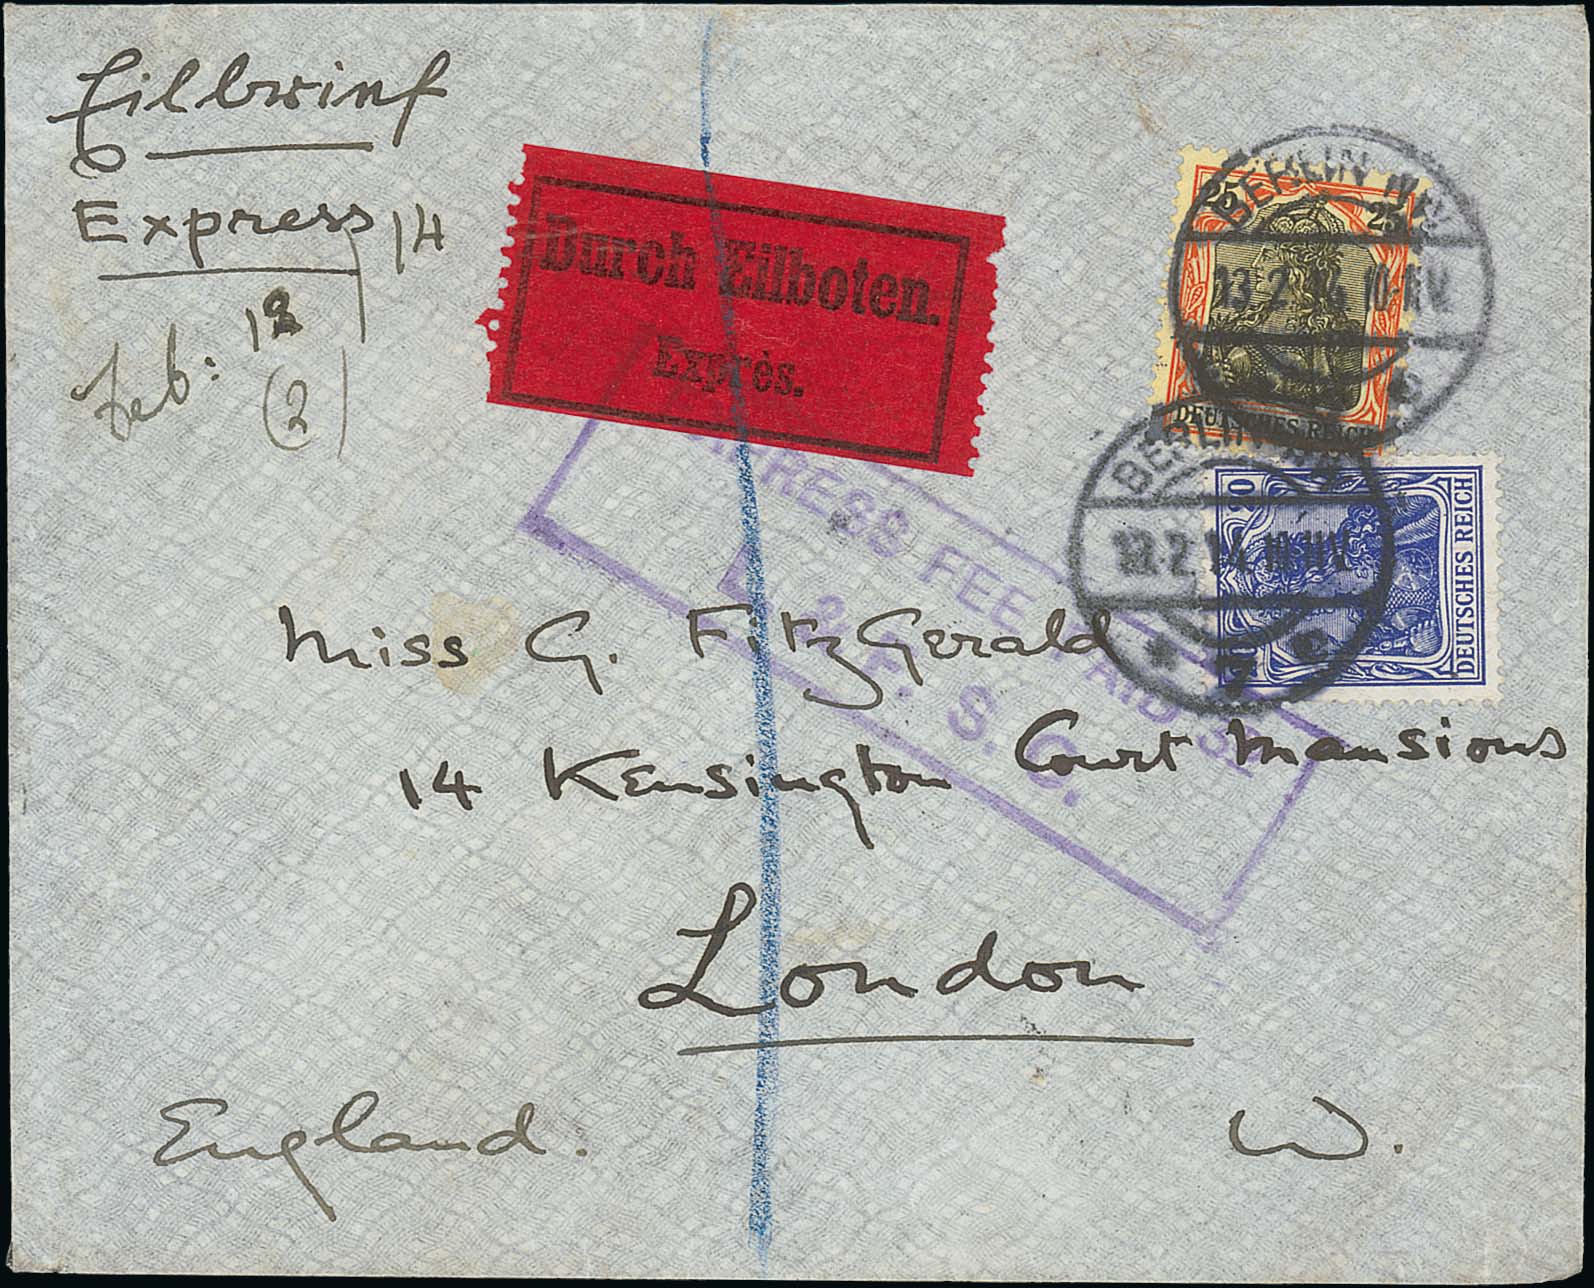 Eilbrief
Express 14
Feb: 12
(2)
Durch Eilboten.
Exprès.
25 25
DEUTSCHES REICH
BERLIN N.W.
13.2.14 10-11V.
20
DEUTSCHES REICH
BERLIN
13.2.14 10-11V.
7
EXPRESS FEE PAID 3D
S. O.
Miss G. FitzGerald
14 Kensington Court Mansions
London
England. W.